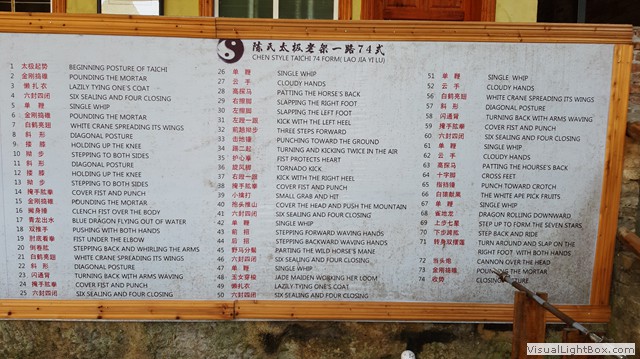 陈氏太极老架一路74式
CHEN STYLE TAICHI 74 FORM( LAO JIA YI LU)
1 太极起势 BEGINNING POSTURE OF TAICHI
2 金刚捣碓 POUNDING THE MORTAR
3 懒扎衣 LAZILY TYING ONE'S COAT
4 六封四闭 SIX SEALING AND FOUR CLOSING
5 单 鞭 SINGLE WHIP
6 金刚捣碓 POUNDING THE MORTAR
7 白鹤亮翅 WHITE CRANE SPREADING ITS WINGS
8 斜 形 DIAGONAL POSTURE
9 搂 膝 HOLDING UP THE KNEE
10 拗 步 STEPPING TO BOTH SIDES
11 斜 形 DIAGONAL POSTURE
12 搂 膝 HOLDING UP THE KNEE
13 拗 步 STEPPING TO BOTH SIDES
14 掩手肱拳 COVER FIST AND PUNCH
15 金刚捣碓 POUNDING THE MORTAR
16 撇身捶 CLENCH FIST OVER THE BODY
17 青龙出水 BLUE DRAGON FLYING OUT OF WATER
18 双推手 PUSHING WITH BOTH HANDS
19 肘底看拳 FIST UNDER THE ELBOW
20 倒卷肱 STEPPING BACK AND WHIRLING THE ARMS
21 白鹤亮翅 WHITE CRANE SPREADING ITS WINGS
22 斜 形 DIAGONAL POSTURE
23 闪通背 TURNING BACK WITH ARMS WAVING
24 掩手肱拳 COVER FIST AND PUNCH
25 六封四闭 SIX SEALING AND FOUR CLOSING
26 单 鞭 SINGLE WHIP
27 云 手 CLOUDY HANDS
28 高探马 PATTING THE HORSE'S BACK
29 右擦脚 SLAPPING THE RIGHT FOOT
30 左擦脚 SLAPPING THE LEFT FOOT
31 左蹬一跟 KICK WITH THE LEFT HEEL
32 前趟拗步 THREE STEPS FORWARD
33 击地捶 PUNCHING TOWARD THE GROUND
34 踢二起 TURNING AND KICKING TWICE IN THE AIR
35 护心拳 FIST PROTECTS HEART
36 旋风脚 TORNADO KICK
37 右蹬一跟 KICK WITH THE RIGHT HEEL
38 掩手肱拳 COVER FIST AND PUNCH
39 小擒打 SMALL GRAB AND HIT
40 抱头推山 COVER THE HEAD AND PUSH THE MOUNTAIN
41 六封四闭 SIX SEALING AND FOUR CLOSING
42 单 鞭 SINGLE WHIP
43 前 招 STEPPING FORWARD WAVING HANDS
44 后 招 STEPPING BACKWARD WAVING HANDS
45 野马分鬃 PARTING THE WILD HORSE'S MANE
46 六封四闭 SIX SEALING AND FOUR CLOSING
47 单 鞭 SINGLE WHIP
48 玉女穿梭 JADE MAIDEN WORKING HER LOOM
49 懒扎衣 LAZILY TYING ONE'S COAT
50 六封四闭 SIX SEALING AND FOUR CLOSING
51 单 鞭 SINGLE WHIP
52 云 手 CLOUDY HANDS
56 白鹤亮翅 WHITE CRANE SPREADING ITS WINGS
57 斜 形 DIAGONAL POSTURE
58 闪通背 TURNING BACK WITH ARMS WAVING
59 掩手肱拳 COVER FIST AND PUNCH
60 六封四闭 SIX SEALING AND FOUR CLOSING
61 单 鞭 SINGLE WHIP
62 云 手 CLOUDY HANDS
63 高探马 PATTING THE HOURSE'S BACK
64 十字脚 CROSS FEET
65 指裆捶 PUNCH TOWARD CROTCH
66 白猿献果 THE WHITE APE PICK FRUITS
67 单 鞭 SINGLE WHIP
68 雀地龙 DRAGON ROLLING DOWNWARD
69 上步七星 STEP UP TO FORM THE SEVEN STARS
70 下步跨肱 STEP BACK AND RIDE
71 转身双摆莲 TURN AROUND AND SLAP ON THE
RIGHT FOOT WITH BOTH HANDS
72 当头炮 CANNON OVER THE HEAD
73 金刚捣碓 POUNDING THE MORTAR
74 收势 CLOSING POSTURE
VisualLightBox.com